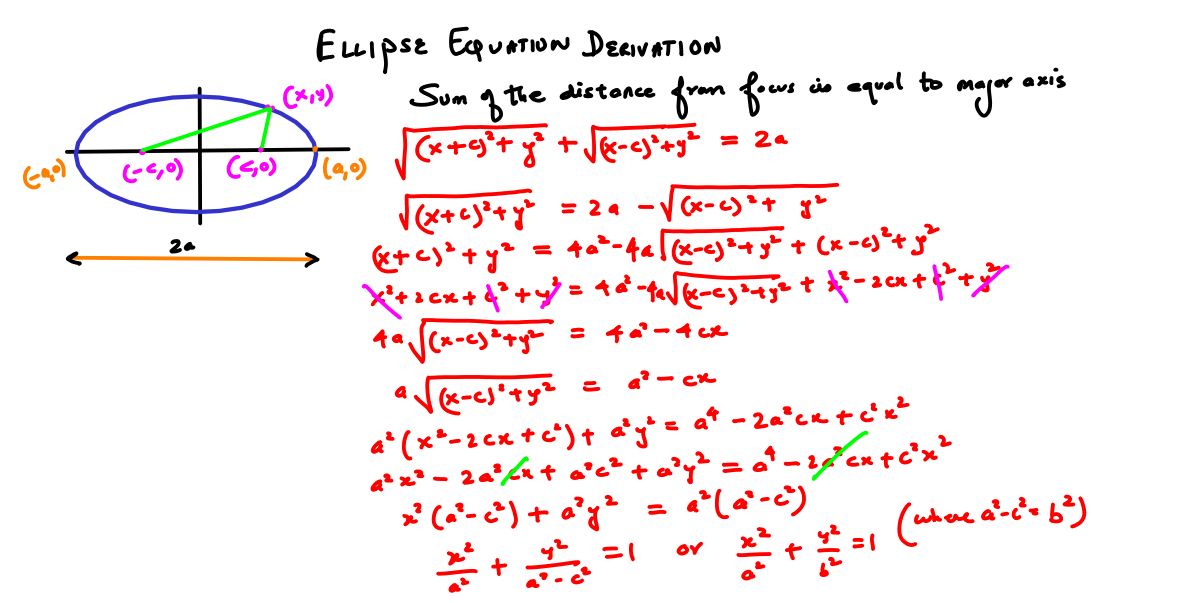 ELLIPSE EQUATION DERIVATION
Sum of the distance from focus is equal to major axis
(x,y)
(-a,0)
(-c,0)
(c,0)
(a,0)
2a
√((x+c)²+y²) + √((x-c)²+y²) = 2a
√((x+c)²+y²) = 2a - √((x-c)²+y²)
(x+c)²+y² = 4a²-4a√((x-c)²+y²) + (x-c)²+y²
x²+2cx+c²+y² = 4a²-4a√((x-c)²+y²) + x²-2cx+c²+y²
4a√((x-c)²+y²) = 4a²-4cx
a√((x-c)²+y²) = a²-cx
a²(x²-2cx+c²)+a²y² = a⁴-2a²cx+c²x²
a²x²-2a²cx+a²c²+a²y² = a⁴-2a²cx+c²x²
x²(a²-c²)+a²y² = a²(a²-c²)
x²/a² + y²/(a²-c²) = 1 or x²/a² + y²/b² = 1 (where a²-c²=b²)